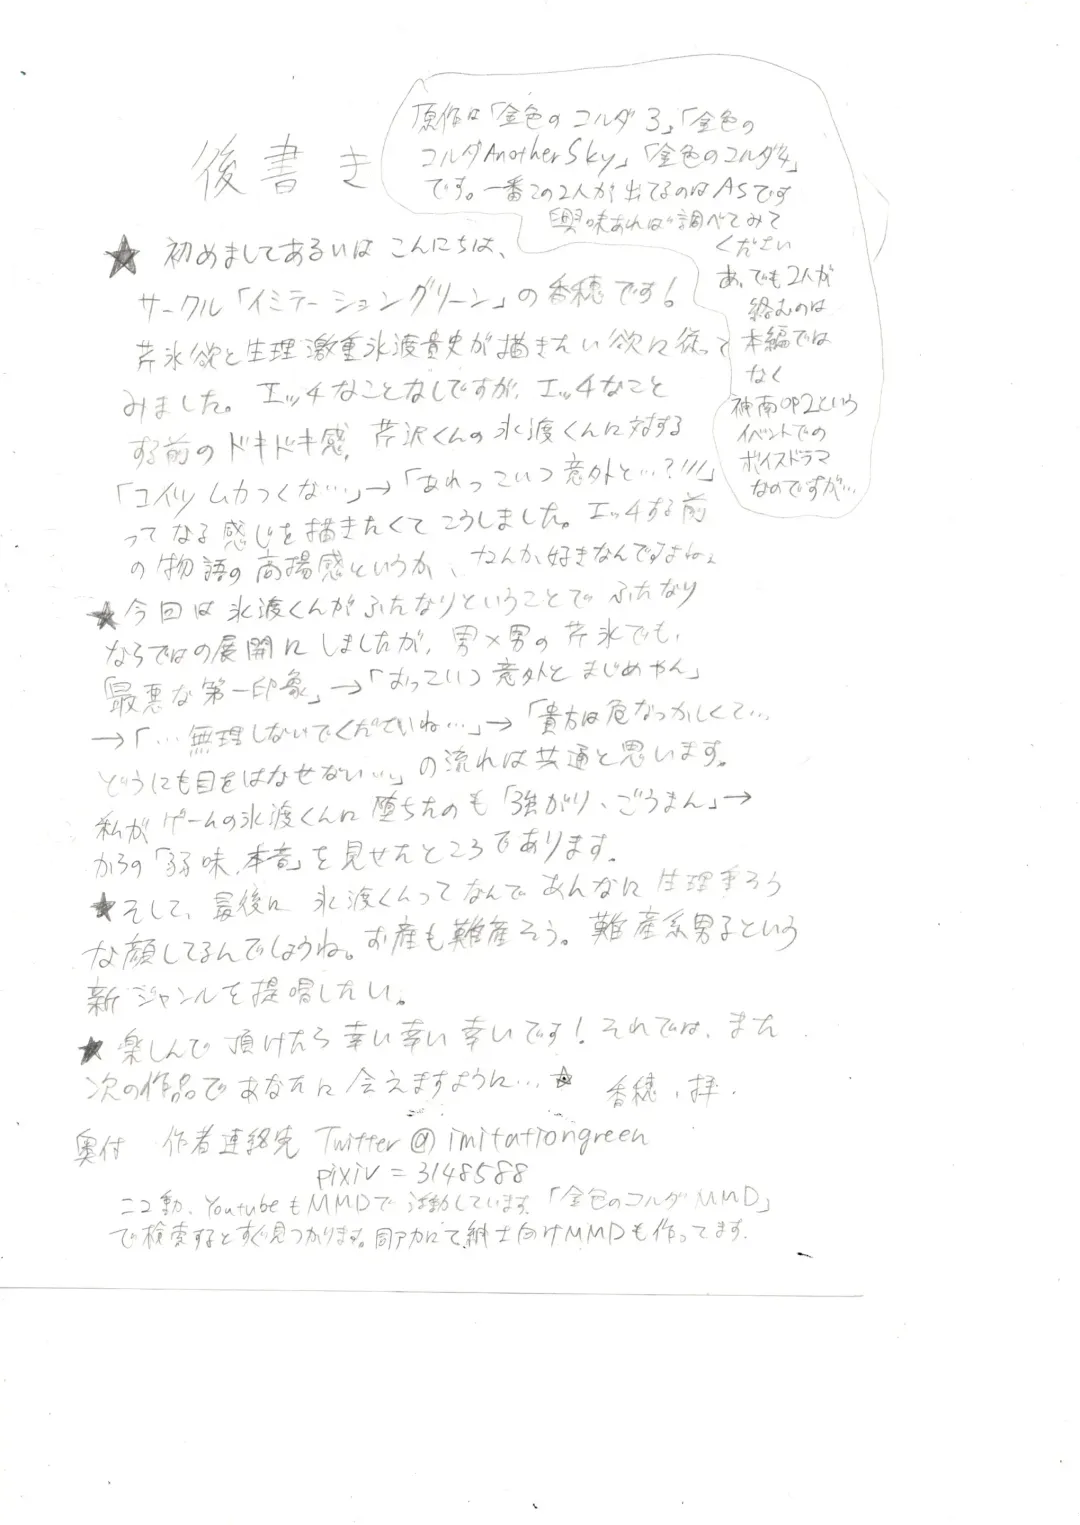 後書き
原作は「金色のコルダ3」「金色の
コルダAnotherSky」「金色のコルダ4」
です。一番この2人が出てるのはASです
興味あれば調べてみて
ください
あ、でも2人が
絡むのは
本編では
なく
神南OP2という
イベントでの
ボイスドラマ
なのですが…
★初めましてあるいはこんにちは、
サークル「イミテーショングリーン」の香穂です!
芹氷欲と生理激重氷渡貴史が描きたい欲に従って
みました。エッチなことなしですが、エッチなこと
する前のドキドキ感、芹沢くんの氷渡くんに対する
「コイツムカつくな…」→「あれっこいつ意外と…?///」
ってなる感じを描きたくてこうしました。エッチする前
の物語の高揚感というか、なんか好きなんですよね。
★今回は氷渡くんがふたなりということでふたなり
ならではの展開にしましたが、男×男の芹氷でも、
「最悪な第一印象」→「おっこいつ意外とまじめやん」
→「…無理しないでくださいね…」→「貴方は危なっかしくて…
どうにも目をはなせない…」の流れは共通と思います。
私がゲームの氷渡くんに堕ちたのも「強がり、ごうまん」→
からの「弱味、本音」を見せたところであります。
★そして、最後に氷渡くんってなんであんなに生理重そう
な顔してるんでしょうね。お産も難産そう。難産系男子という
新ジャンルを提唱したい。
★楽しんで頂けたら幸い幸い幸いです!それでは、また
次の作品であなたに会えますように…☆
香穂、拝.
奥付 作者連絡先 Twitter@imitationgreen
pixiv=3148588
ニコ動、YoutubeもMMDで活動しています。「金色のコルダMMD」
で検索するとすぐ見つかります。同アカにて紳士向けMMDも作ってます.